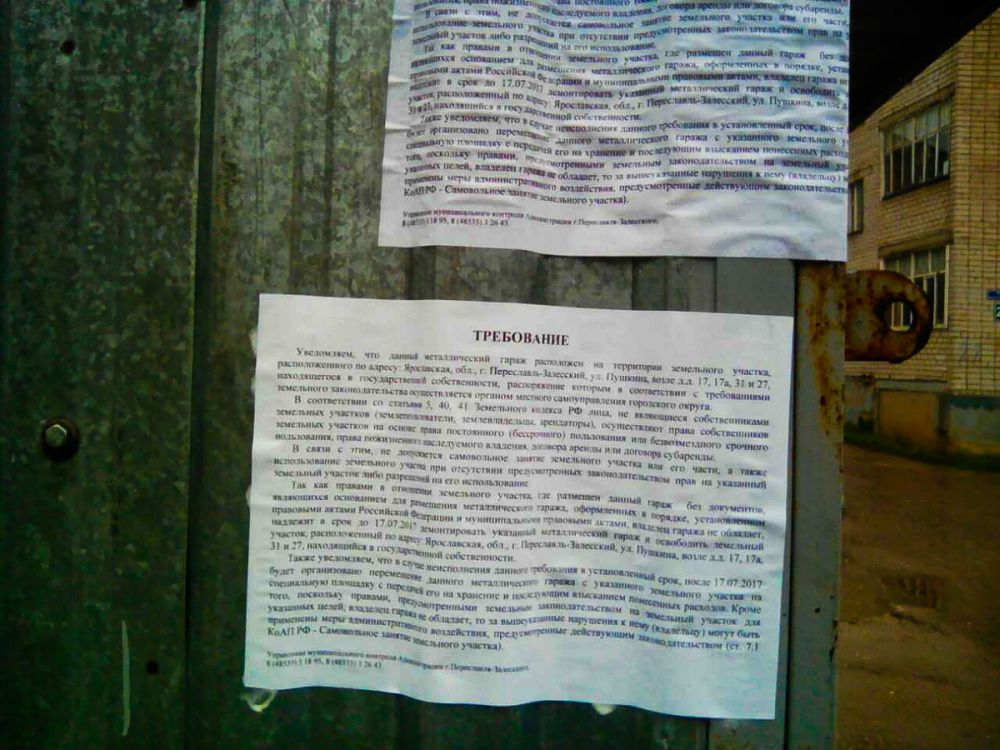 ования, права пожизненного наследуемого владения, договора аренды или договора субаренды.
В связи с этим, не допускается самовольное занятие земельного участка или его части,
использование земельного участка при отсутствии предусмотренных законодательством прав на у
земельный участок либо разрешений на его использование.
Так как правами в отношении земельного участка, где размещен данный гараж без до
являющихся основанием для размещения металлического гаража, оформленных в порядке, уста
правовыми актами Российской Федерации и муниципальными правовыми актами, владелец гаража не
надлежит в срок до 17.07.2017 демонтировать указанный металлический гараж и освободить
участок, расположенный по адресу: Ярославская, обл., г. Переславль-Залесский, ул. Пушкина, возле д
31 и 27, находящийся в государственной собственности.
Также уведомляем, что в случае неисполнения данного требования в установленный срок, после
будет организовано перемещение данного металлического гаража с указанного земельного у
специальную площадку с передачей его на хранение и последующим взысканием понесенных расход
того, поскольку правами, предусмотренными земельным законодательством на земельный уч
указанных целей, владелец гаража не обладает, то за вышеуказанные нарушения к нему (владельцу) м
применены меры административного воздействия, предусмотренные действующим законодательств
КоАП РФ - Самовольное занятие земельного участка).
Управление муниципального контроля Администрации г.Переславля-Залесского.
8 (48535) 3 18 95, 8 (48535) 3 26 43
ТРЕБОВАНИЕ
Уведомляем, что данный металлический гараж расположен на территории земельного участка,
расположенного по адресу: Ярославская, обл., г. Переславль-Залесский, ул. Пушкина, возле д.д. 17, 17а, 31 и 27,
находящегося в государственной собственности, распоряжение которым в соответствии с требованиями
земельного законодательства осуществляется органом местного самоуправления городского округа.
В соответствии со статьями 5, 40, 41 Земельного кодекса РФ лица, не являющиеся собственниками
земельных участков (землепользователи, землевладельцы, арендаторы), осуществляют права собственников
земельных участков на основе права постоянного (бессрочного) пользования или безвозмездного срочного
пользования, права пожизненного наследуемого владения, договора аренды или договора субаренды.
В связи с этим, не допускается самовольное занятие земельного участка или его части, а также
использование земельного участка при отсутствии предусмотренных законодательством прав на указанный
земельный участок либо разрешений на его использование
Так как правами в отношении земельного участка, где размещен данный гараж без документов,
являющихся основанием для размещения металлического гаража, оформленных в порядке, установленном
правовыми актами Российской Федерации и муниципальными правовыми актами, владелец гаража не обладает,
надлежит в срок до 17.07.2017 демонтировать указанный металлический гараж и освободить земельный
участок, расположенный по адресу: Ярославская, обл., г. Переславль-Залесский, ул. Пушкина, возле д.д. 17, 17а,
31 и 27, находящийся в государственной собственности.
Также уведомляем, что в случае неисполнения данного требования в установленный срок, после 17.07.2017
будет организовано перемещение данного металлического гаража с указанного земельного участка на
специальную площадку с передачей его на хранение и последующим взысканием понесенных расходов. Кроме
того, поскольку правами, предусмотренными земельным законодательством на земельный участок для
указанных целей, владелец гаража не обладает, то за вышеуказанные нарушения к нему (владельцу) могут быть
применены меры административного воздействия, предусмотренные действующим законодательством (ст. 7.1
КоАП РФ - Самовольное занятие земельного участка).
Управление муниципального контроля Администрации г.Переславля-Залесского.
8 (48535) 3 18 95, 8 (48535) 3 26 43